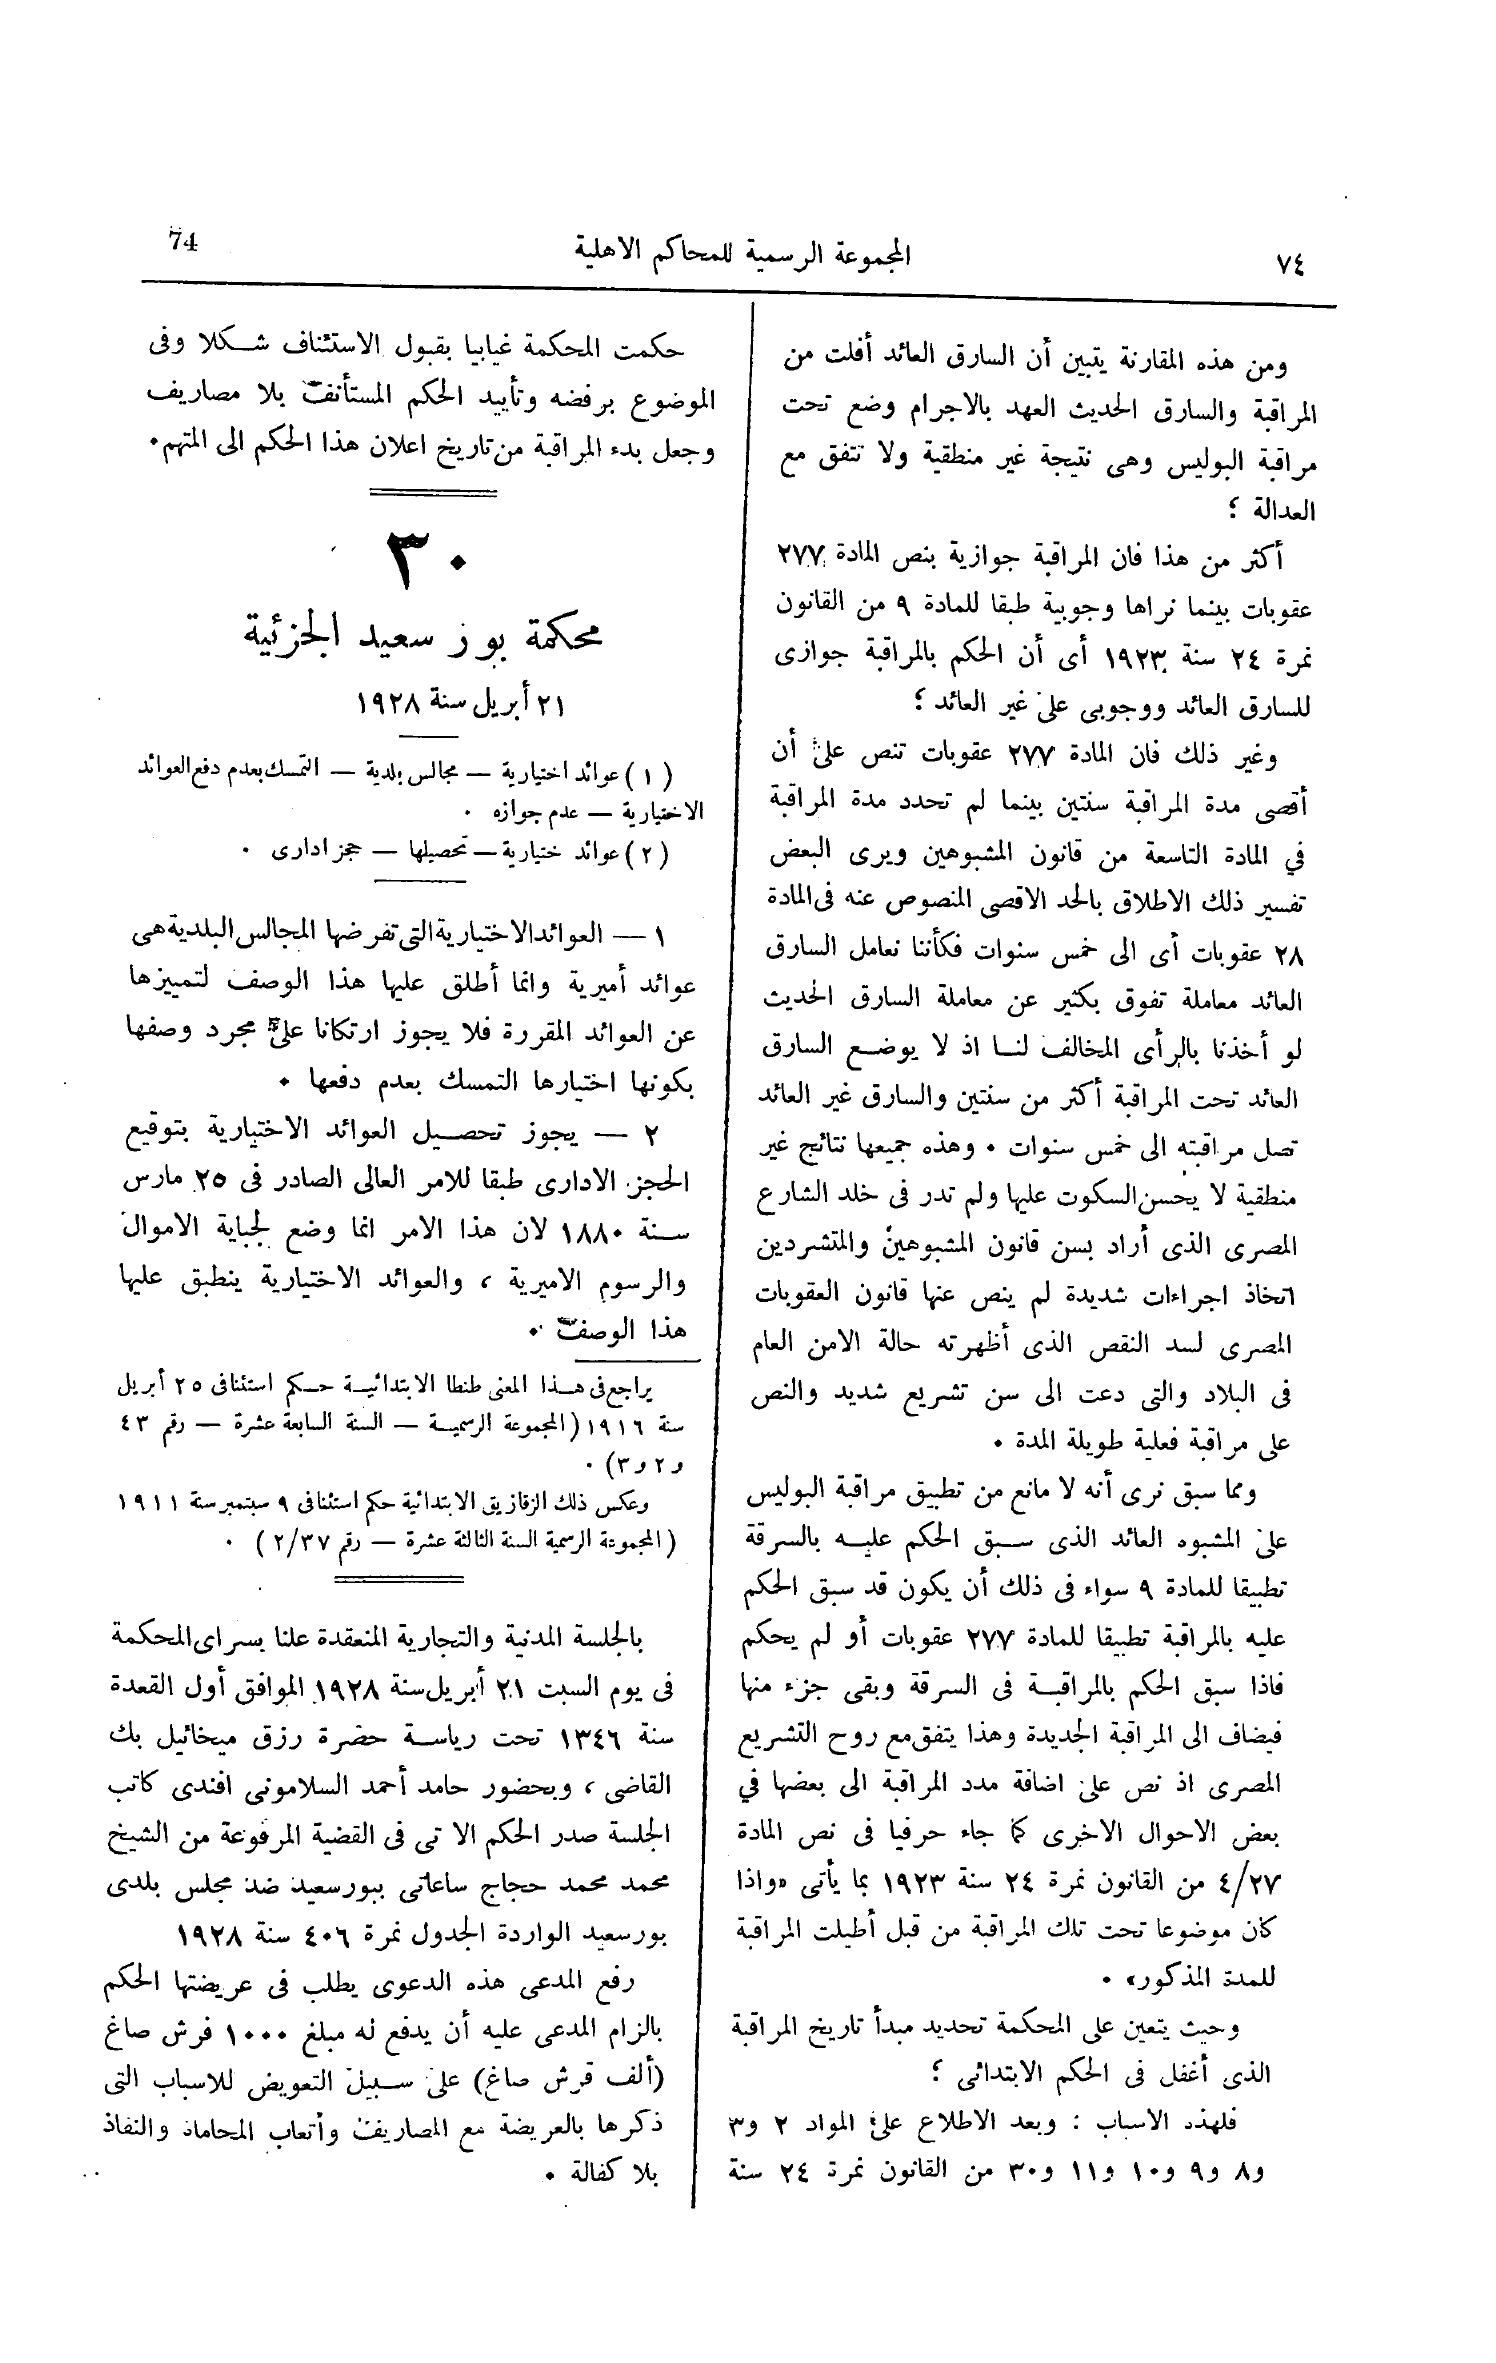 ٧٤
المجموعة الرسمية للمحاكم الاهلية
74
ومن هذه المقارنة يتبين أن السارق العائد أفلت من
المراقبة والسارق الحديث العهد بالاجرام وضع تحت
مراقبة البوليس وهى نتيجة غير منطقية ولا تتفق مع
العدالة ؛
أكثر من هذا فان المراقبة جوازية بنص المادة ٢٧٧
عقوبات بينما نراها وجوبية طبقا للمادة ٩ من القانون
نمرة ٢٤ سنة ١٩٢٣ أى أن الحكم بالمراقبة جوازى
للسارق العائد ووجوبى على غير العائد ؛
وغير ذلك فان المادة ٢٧٧ عقوبات تنص على أن
أقصى مدة المراقبة سنتين بينما لم تحدد مدة المراقبة
في المادة التاسعة من قانون المشبوهين ويرى البعض
تفسير ذلك الاطلاق بالحد الاقصى المنصوص عنه فى المادة
٢٨ عقوبات أى الى خمس سنوات فكأننا نعامل السارق
العائد معاملة تفوق بكثير عن معاملة السارق الحديث
لو أخذنا بالرأى المخالف لنا اذ لا يوضع السارق
العائد تحت المراقبة أكثر من سنتين والسارق غير العائد
تصل مراقبته الى خمس سنوات ٠ وهذه جميعها نتائج غير
منطقية لا يحسن السكوت عليها ولم تدر فى خلد الشارع
المصرى الذى أراد بسن قانون المشبوهين والمتشردين
اتخاذ اجراءات شديدة لم ينص عنها قانون العقوبات
المصرى لسد النقص الذى أظهرته حالة الامن العام
فى البلاد والتى دعت الى سن تشريع شديد والنص
على مراقبة فعلية طويلة المدة ٠
ومما سبق نرى أنه لا مانع من تطبيق مراقبة البوليس
على المشبوه العائد الذى سبق الحكم عليه بالسرقة
تطبيقا للمادة ٩ سواء فى ذلك أن يكون قد سبق الحكم
عليه بالمراقبة تطبيقا للمادة ٢٧٧ عقوبات أو لم يحكم
فاذا سبق الحكم بالمراقبة فى السرقة وبقى جزء منها
فيضاف الى المراقبة الجديدة وهذا يتفق مع روح التشريع
المصرى اذ نص على اضافة مدد المراقبة الى بعضها في
بعض الاحوال الاخرى كما جاء حرفيا فى نص المادة
٤/٢٧ من القانون نمرة ٢٤ سنة ١٩٢٣ بما يأتى «واذا
كان موضوعا تحت تلك المراقبة من قبل أطيلت المراقبة
للمدة المذكور» ٠
وحيث يتعين على المحكمة تحديد مبدأ تاريخ المراقبة
الذى أغفل فى الحكم الابتدائى ؛
فلهذه الاسباب : وبعد الاطلاع على المواد ٢ و٣
و٨ و٩ و١٠ و١١ و٣٠ من القانون نمرة ٢٤ سنة
حكمت المحكمة غيابيا بقبول الاستئناف شكلا وفى
الموضوع برفضه وتأييد الحكم المستأنف بلا مصاريف
وجعل بدء المراقبة من تاريخ اعلان هذا الحكم الى المتهم ٠
٣٠
محكمة بور سعيد الجزئية
٢١ أبريل سنة ١٩٢٨
(١) عوائد اختيارية — مجالس بلدية — التمسك بعدم دفع العوائد
الاختيارية — عدم جوازه ٠
(٢) عوائد ختيارية — تحصيلها — حجز ادارى ٠
١ — العوائد الاختيارية التى تفرضها المجالس البلدية هى
عوائد أميرية وانما أطلق عليها هذا الوصف لتمييزها
عن العوائد المقررة فلا يجوز ارتكانا على مجرد وصفها
بكونها اختيارها التمسك بعدم دفعها ٠
٢ — يجوز تحصيل العوائد الاختيارية بتوقيع
الحجز الادارى طبقا للامر العالى الصادر فى ٢٥ مارس
سنة ١٨٨٠ لان هذا الامر انما وضع لجباية الاموال
والرسوم الاميرية ، والعوائد الاختيارية ينطبق عليها
هذا الوصف ٠
يراجع فى هذا المعنى طنطا الابتدائية حكم استئنافى ٢٥ أبريل
سنة ١٩١٦ (المجموعة الرسمية — السنة السابعة عشرة — رقم ٤٣
و٢ و٣) ٠
وعكس ذلك الزقازيق الابتدائية حكم استئنافى ٩ سبتمبر سنة ١٩١١
(المجموعة الرسمية السنة الثالثة عشرة — رقم ٢/٣٧) ٠
بالجلسة المدنية والتجارية المنعقدة علنا بسراى المحكمة
فى يوم السبت ٢١ أبريل سنة ١٩٢٨ الموافق أول القعدة
سنة ١٣٤٦ تحت رياسة حضرة رزق ميخائيل بك
القاضى ، وبحضور حامد أحمد السلامونى افندى كاتب
الجلسة صدر الحكم الا تى فى القضية المرفوعة من الشيخ
محمد محمد حجاج ساعاتى ببورسعيد ضد مجلس بلدى
بورسعيد الواردة الجدول نمرة ٤٠٦ سنة ١٩٢٨
رفع المدعى هذه الدعوى يطلب فى عريضتها الحكم
بالزام المدعى عليه أن يدفع له مبلغ ١٠٠٠ قرش صاغ
(ألف قرش صاغ) على سبيل التعويض للاسباب التى
ذكرها بالعريضة مع المصاريف وأتعاب المحاماه والنفاذ
بلا كفالة ٠